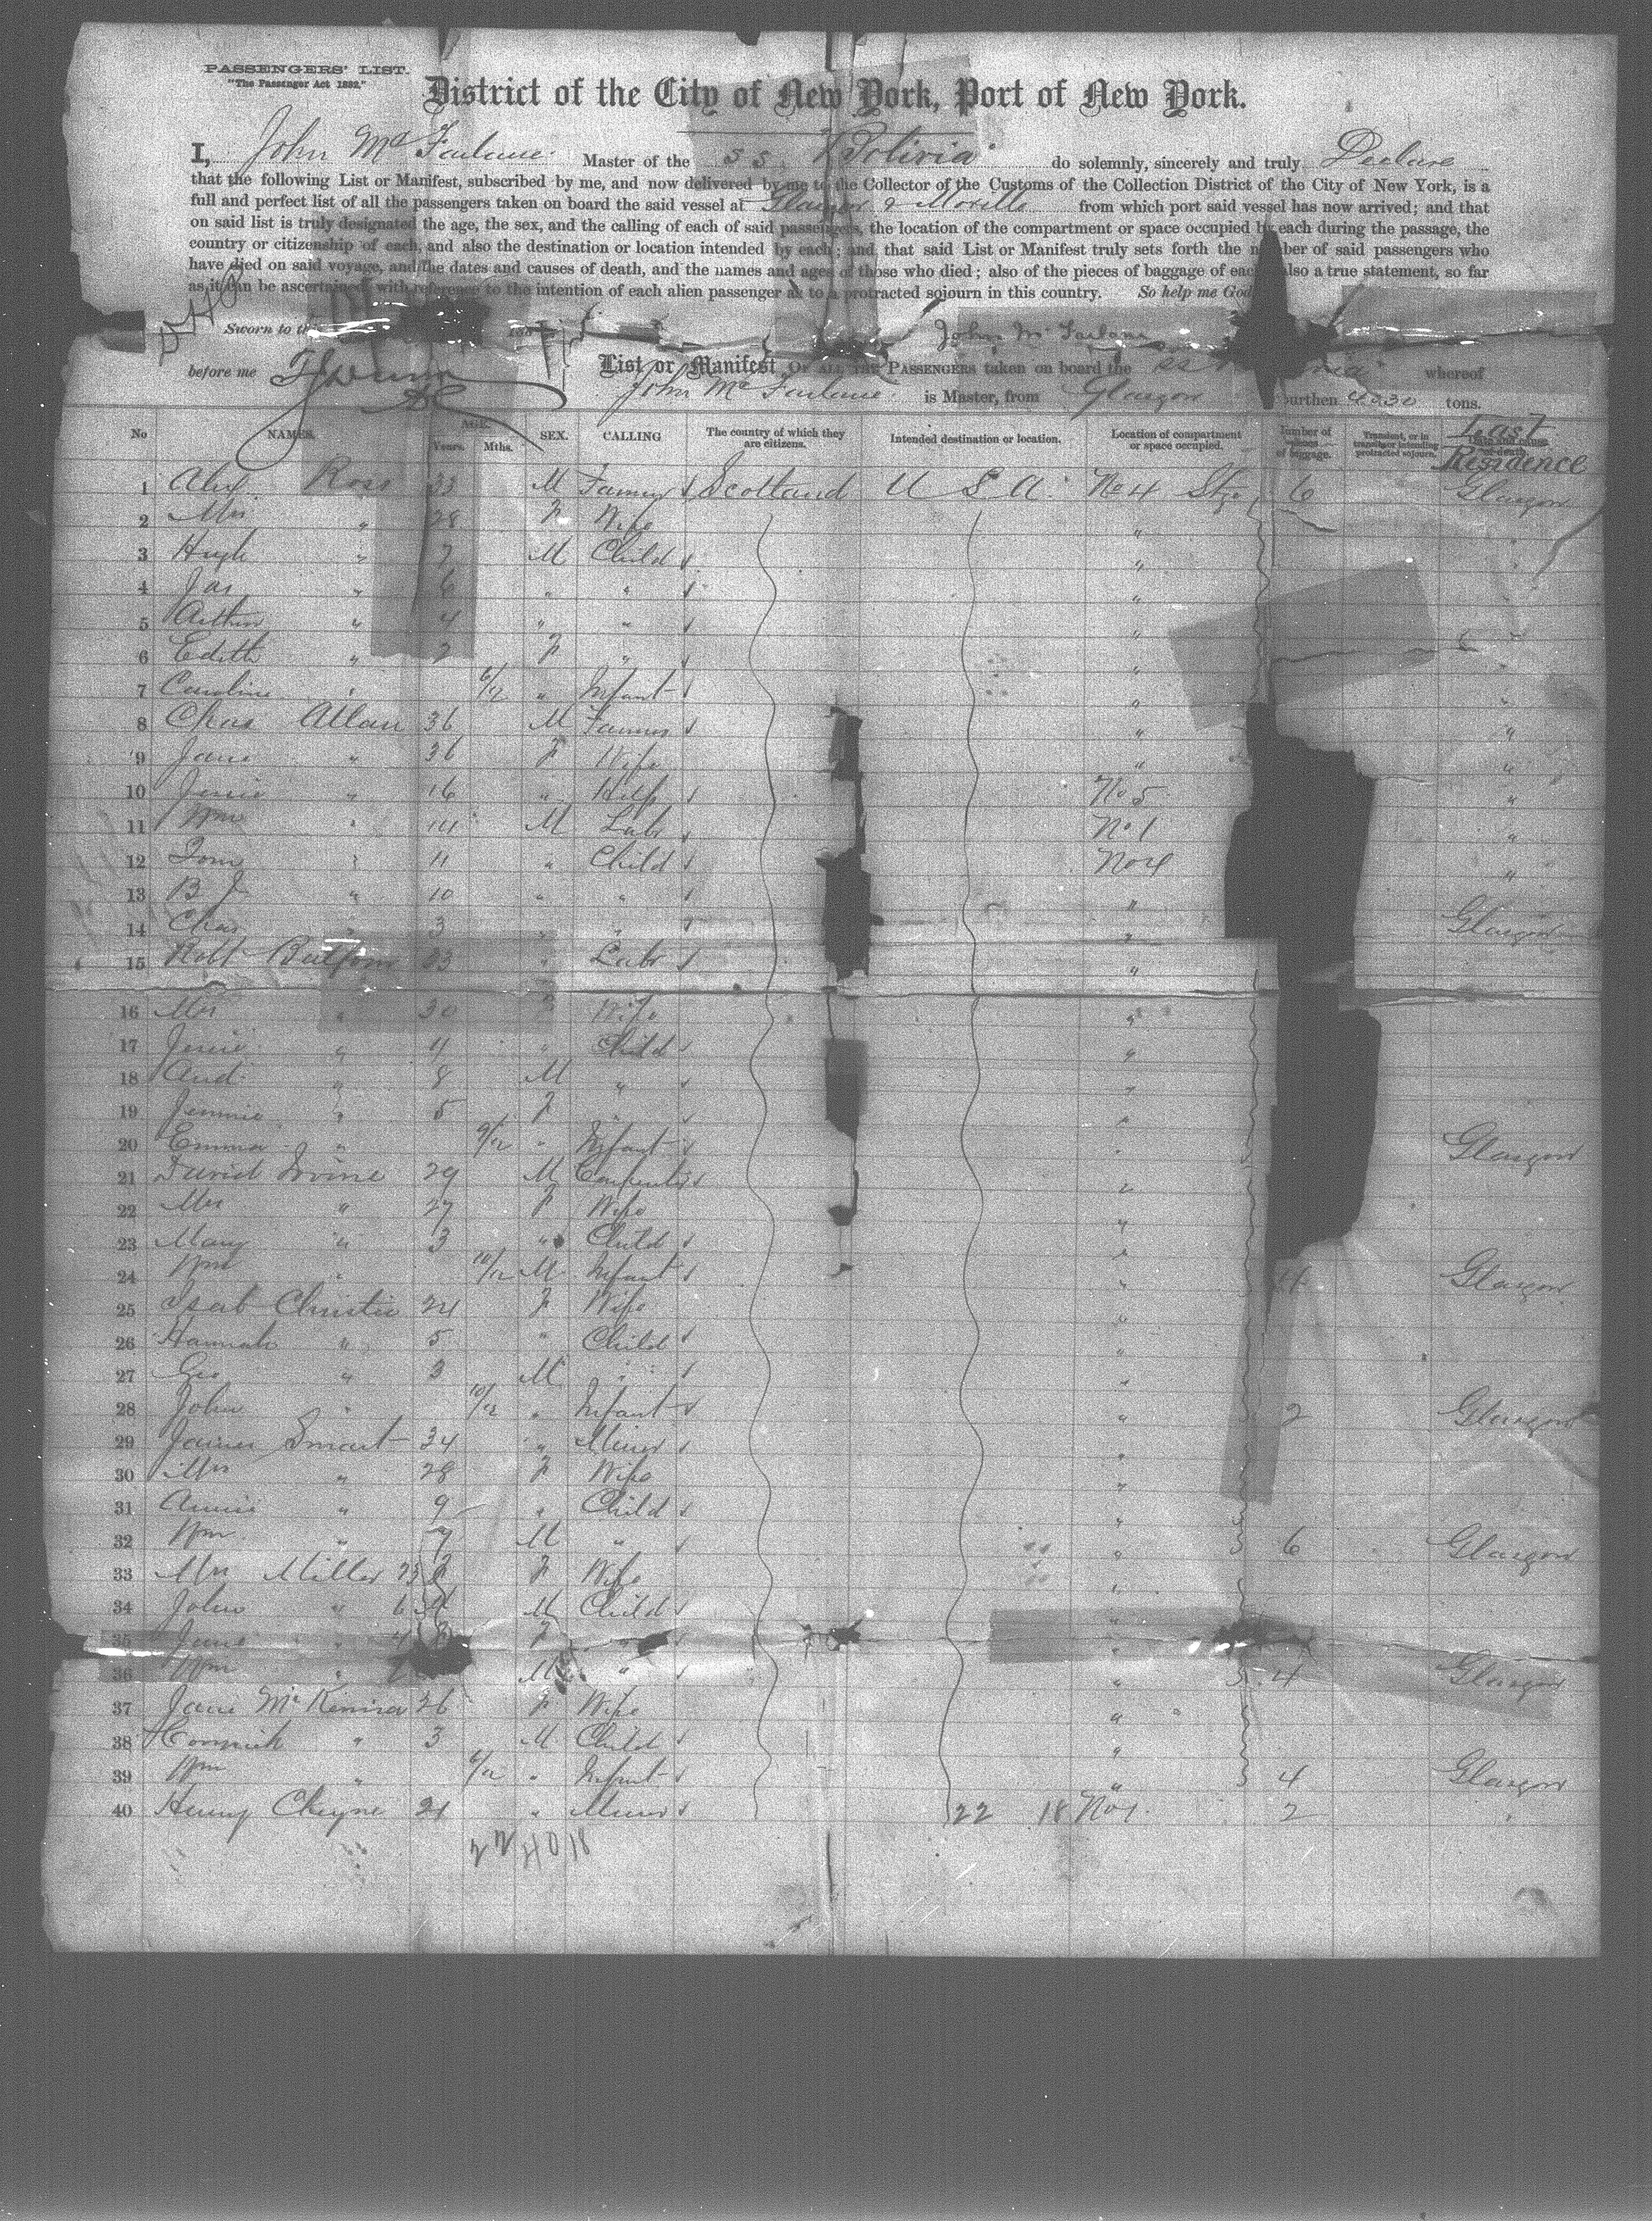 PASSENGERS' LIST.
"The Passenger Act 1882."
District of the City of New York, Port of New York.
I, John McFarlane Master of the s s. "Bolivia" do solemnly, sincerely and truly Declare
that the following List or Manifest, subscribed by me, and now delivered by me to the Collector of the Customs of the Collection District of the City of New York, is a
full and perfect list of all the passengers taken on board the said vessel at Glasgow & Moville from which port said vessel has now arrived; and that
on said list is truly designated the age, the sex, and the calling of each of said passengers, the location of the compartment or space occupied by each during the passage, the
country or citizenship of each, and also the destination or location intended by each; and that said List or Manifest truly sets forth the number of said passengers who
have died on said voyage, and the dates and causes of death, and the names and ages of those who died; also of the pieces of baggage of each also a true statement, so far
as it can be ascertained with reference to the intention of each alien passenger as to a protracted sojourn in this country. So help me God
Sworn to th John McFarlane
before me List or Manifest OF ALL THE PASSENGERS taken on board the ss whereof
John McFarlane is Master, from Glasgow burthen 4050 tons.
No NAMES. AGE. Years. Mths. SEX. CALLING The country of which they are citizens. Intended destination or location. Location of compartment or space occupied. Number of pieces of baggage. Transient, or in transit or intending protracted sojourn. Date and cause of death. Last Residence
1 Alex Ross 33 M Farmer Scotland U S A. No 4 Stge 6 Glasgow
2 Mrs " 28 F Wife "
3 Hugh " 7 M Child "
4 Jas " 6 " " "
5 Arthur " 4 " " "
6 Edith " 2 F " "
7 Caroline " 6/12 " Infant "
8 Chas Allan 36 M Farmer " "
9 Jane " 36 F Wife " "
10 Jessie " 16 " Help No 5 "
11 Wm " 14 M Labr No 1 "
12 Tom " 11 " Child No 4 "
13 B J " 10 " " "
14 Chas " 3 " " " Glasgow
15 Robt 33 " Labr "
16 Mrs " 30 F Wife "
17 Jessie " 11 " Child "
18 And " 8 M " "
19 Jemmie " 5 F " "
20 Emma " 9/12 " Infant " Glasgow
21 David Irvine 29 M Carpenter "
22 Mrs " 27 F Wife "
23 Mary " 3 " Child "
24 Wm " 10/12 M Infant " Glasgow
25 Isab Christie 24 F Wife "
26 Hannah " 5 " Child "
27 Geo " 3 M " "
28 John " 10/12 " Infant " 2 Glasgow
29 James Smart 34 " Miner "
30 Mrs " 28 F Wife "
31 Annie " 9 " Child "
32 Wm " 7 M " " 6 Glasgow
33 Mrs Miller F Wife "
34 John " 6 M Child "
35 Jane " 4 F " "
36 Wm " M " " 4 Glasgow
37 Jane McKenna 26 F Wife "
38 Cormick " 3 M Child "
39 Wm " 6/12 " Infant " 4 Glasgow
40 Henry Cheyne 21 " Miner 22 18 No 1. 2 "
22 40 18